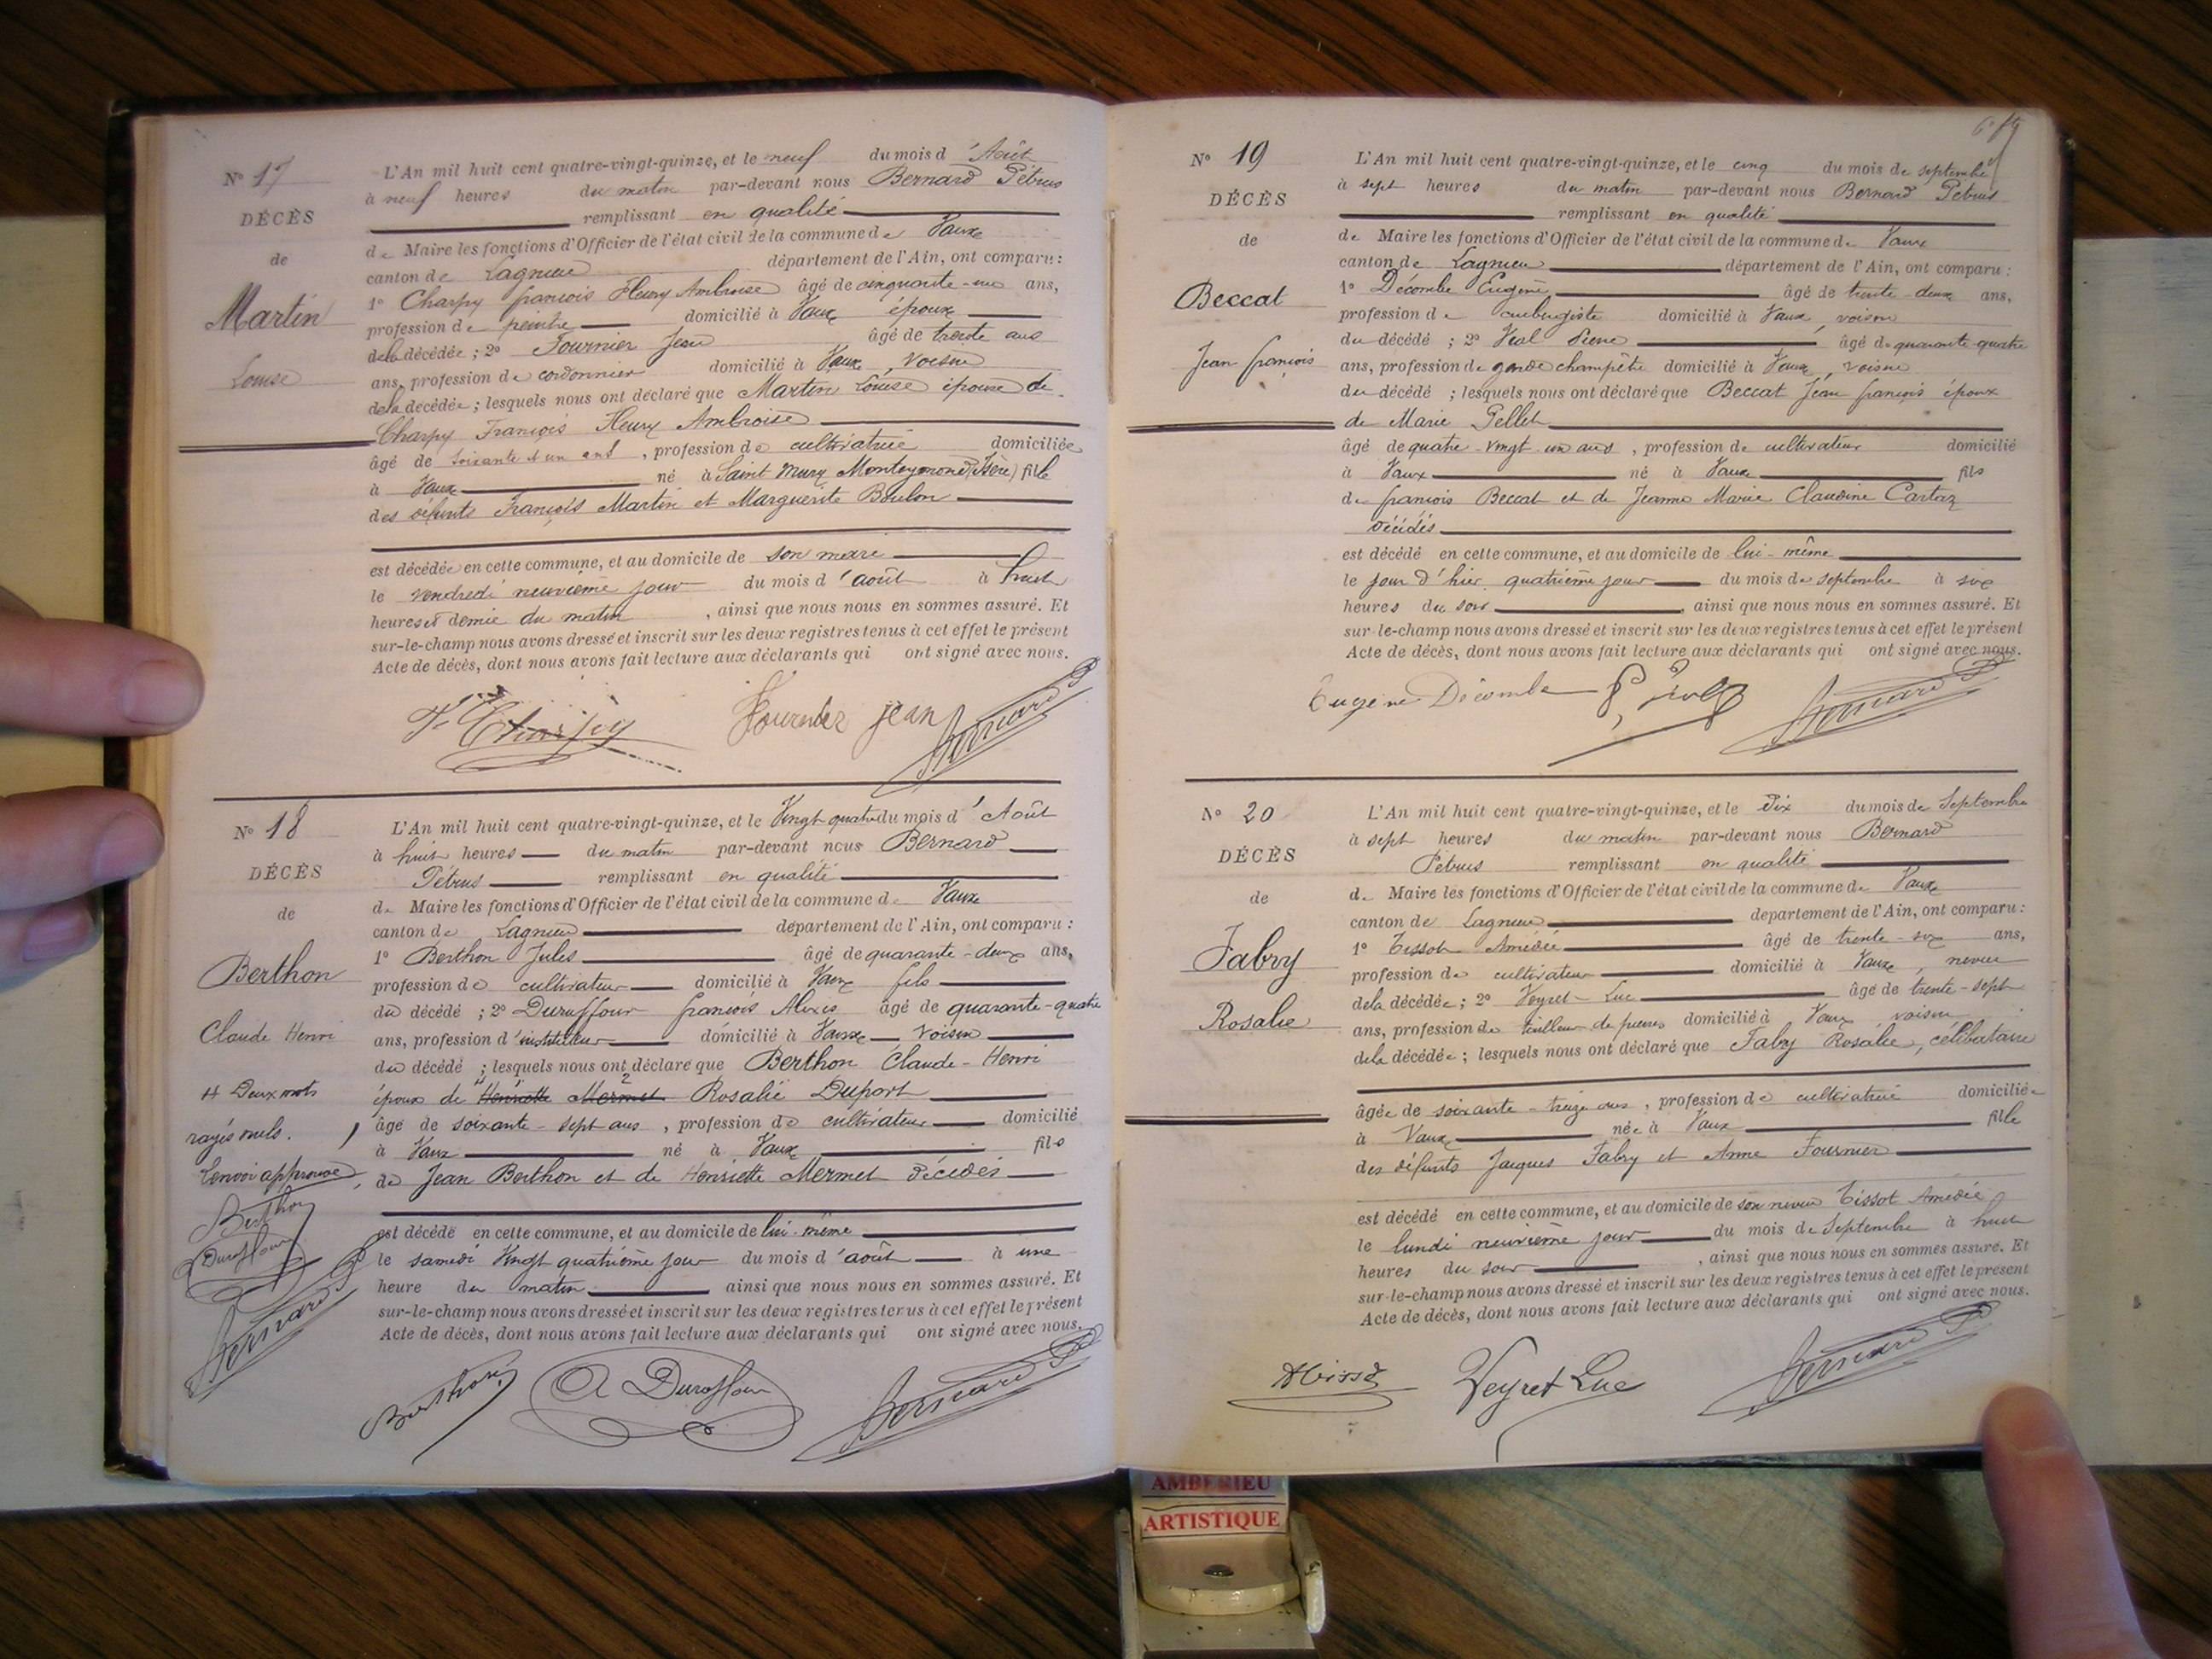 N° 17
DÉCÈS
de
Martin
Louise
L'An mil huit cent quatre-vingt-quinze, et le neuf du mois d'Août
à neuf heures du matin par-devant nous Bernard Pétrus
remplissant en qualité
de Maire les fonctions d'Officier de l'état civil de la commune de Vaux
canton de Lagnieu département de l'Ain, ont comparu :
1° Charpy françois Fleury Ambroise âgé de cinquante-un ans,
profession de peintre domicilié à Vaux époux
de la décédée ; 2° Fournier Jean âgé de trente ans
ans, profession de cordonnier domicilié à Vaux, voisin
de la décédée ; lesquels nous ont déclaré que Martin Louise épouse de
Charpy François Fleury Ambroise
âgé de soixante et un ans, profession de cultivatrice domiciliée
à Vaux né à Saint Mury Monteymond (Isère) fille
des défunts François Martin et Marguerite Boulon
est décédée en cette commune, et au domicile de son mari
le vendredi neuvième jour du mois d'août à huit
heures et demie du matin, ainsi que nous nous en sommes assuré. Et
sur-le-champ nous avons dressé et inscrit sur les deux registres tenus à cet effet le présent
Acte de décès, dont nous avons fait lecture aux déclarants qui ont signé avec nous.
Charpy Fournier jean Bernard P
N° 18
DÉCÈS
de
Berthon
Claude Henri
# Deux mots
rayés nuls.
Renvoi approuvé
Berthon
Duroffour
Bernard P
L'An mil huit cent quatre-vingt-quinze, et le Vingt quatre du mois d'Août
à huit heures du matin par-devant nous Bernard
Pétrus remplissant en qualité
de Maire les fonctions d'Officier de l'état civil de la commune de Vaux
canton de Lagnieu département de l'Ain, ont comparu :
1° Berthon Jules âgé de quarante-deux ans,
profession de cultivateur domicilié à Vaux fils
du décédé ; 2° Duraffour françois Alexis âgé de quarante-quatre
ans, profession d'instituteur domicilié à Vaux, voisin
du décédé ; lesquels nous ont déclaré que Berthon Claude-Henri
époux de Henriette Mermet Rosalie Duport
âgé de soixante-sept ans, profession de cultivateur domicilié
à Vaux né à Vaux fils
de Jean Berthon et de Henriette Mermet décédés
est décédé en cette commune, et au domicile de lui-même
le samedi Vingt quatrième jour du mois d'août à une
heure du matin ainsi que nous nous en sommes assuré. Et
sur-le-champ nous avons dressé et inscrit sur les deux registres tenus à cet effet le présent
Acte de décès, dont nous avons fait lecture aux déclarants qui ont signé avec nous.
Berthon A Duraffour Bernard P
N° 19
DÉCÈS
de
Beccat
Jean françois
L'An mil huit cent quatre-vingt-quinze, et le cinq du mois de septembre
à sept heures du matin par-devant nous Bernard Pétrus
remplissant en qualité
de Maire les fonctions d'Officier de l'état civil de la commune de Vaux
canton de Lagnieu département de l'Ain, ont comparu :
1° Décombe Eugène âgé de trente-deux ans,
profession de aubergiste domicilié à Vaux, voisin
du décédé ; 2° Vial Pierre âgé de quarante quatre
ans, profession de garde champêtre domicilié à Vaux, voisin
du décédé ; lesquels nous ont déclaré que Beccat Jean françois époux
de Marie Pellet
âgé de quatre-vingt-un ans, profession de cultivateur domicilié
à Vaux né à Vaux fils
de françois Beccat et de Jeanne Marie Claudine Cartaz
décédés
est décédé en cette commune, et au domicile de lui-même
le jour d'hier quatrième jour du mois de septembre à six
heures du soir, ainsi que nous nous en sommes assuré. Et
sur-le-champ nous avons dressé et inscrit sur les deux registres tenus à cet effet le présent
Acte de décès, dont nous avons fait lecture aux déclarants qui ont signé avec nous.
Eugène Décombe Bernard P
N° 20
DÉCÈS
de
Fabry
Rosalie
L'An mil huit cent quatre-vingt-quinze, et le dix du mois de Septembre
à sept heures du matin par-devant nous Bernard
Pétrus remplissant en qualité
de Maire les fonctions d'Officier de l'état civil de la commune de Vaux
canton de Lagnieu département de l'Ain, ont comparu :
1° Tissot Amédée âgé de trente-six ans,
profession de cultivateur domicilié à Vaux, neveu
de la décédée ; 2° Veyret Luc âgé de trente-sept
ans, profession de tailleur de pierres domicilié à Vaux voisin
de la décédée ; lesquels nous ont déclaré que Fabry Rosalie, célibataire
âgée de soixante-treize ans, profession de cultivatrice domiciliée
à Vaux née à Vaux fille
des défunts Jacques Fabry et Anne Fournier
est décédé en cette commune, et au domicile de son neveu Tissot Amédée
le lundi neuvième jour du mois de Septembre à huit
heures du soir, ainsi que nous nous en sommes assuré. Et
sur-le-champ nous avons dressé et inscrit sur les deux registres tenus à cet effet le présent
Acte de décès, dont nous avons fait lecture aux déclarants qui ont signé avec nous.
ATissot Veyret Luc Bernard P
AMBERIEU
ARTISTIQUE